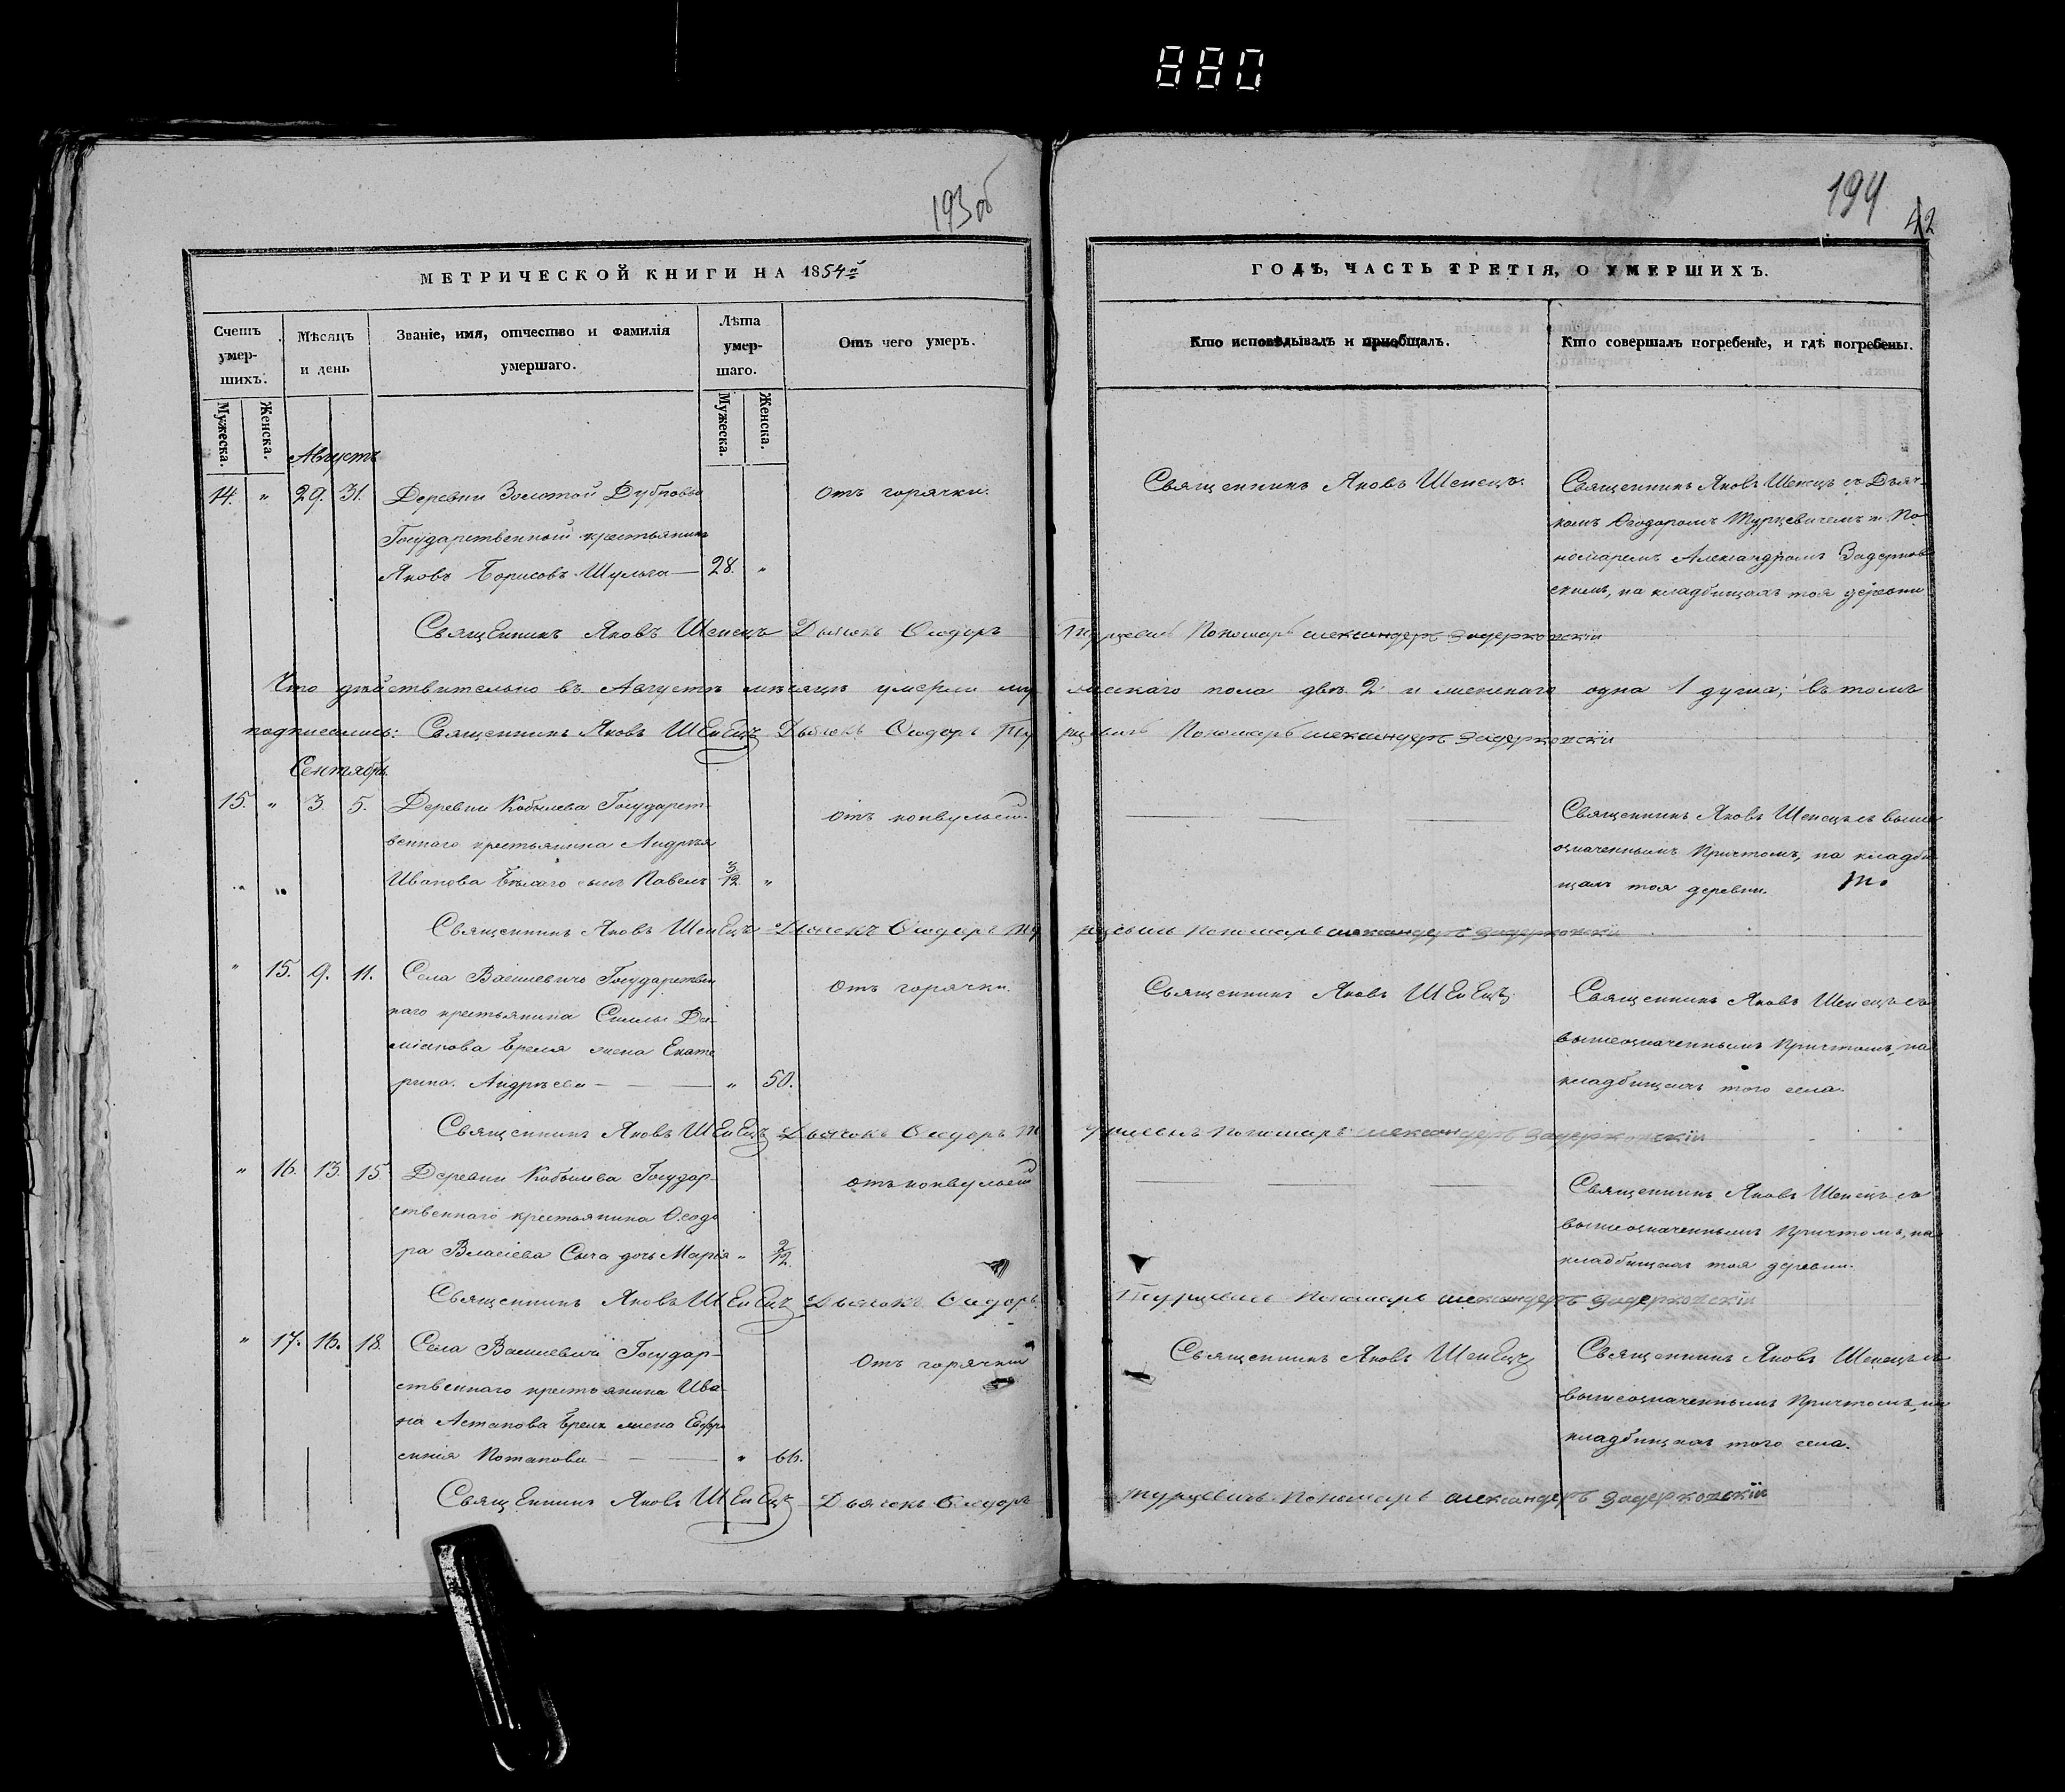 880
193об
194
42
МЕТРИЧЕСКОЙ КНИГИ НА 1854й
ГОДЪ, ЧАСТЬ ТРЕТІЯ, О УМЕРШИХЪ.
Счетъ умер-
шихъ.
Мѣсяцъ
и день
Званіе, имя, отчество и фамилія
умершаго.
Лѣта
умер-
шаго.
Отъ чего умеръ.
Кто исповѣдывалъ и приобщалъ.
Кто совершалъ погребеніе, и гдѣ погребены.
Мужеска.
Женска.
Мужеска.
Женска.
Августъ
14. " 29. 31. Деревни Золотой Дубровы
Государственный крестьянинъ
Яковъ Борисовъ Шульга — 28. "
Отъ горячки.
Священникъ Яковъ Шепецъ.
Священникъ Яковъ Шепецъ съ Дьяч-
комъ Ѳеодоромъ Турцевичемъ и По-
номаремъ Александромъ Задерков-
скимъ, на кладбищахъ тоя деревни
Священникъ Яковъ Шепецъ Дьячокъ Ѳеодоръ Турцевичъ Пономарь Александеръ Задерковскій
Что дѣйствительно въ Августѣ мѣсяцѣ умерли мужескаго пола двѣ 2 и женскаго одна 1 душа; въ томъ
подписались: Священникъ Яковъ Шепецъ Дьячокъ Ѳеодоръ Турцевичъ Пономарь Александеръ Задерковскій
Сентябрь
15. " 3. 5. Деревни Кобылева Государст-
веннаго крестьянина Андрея
Иванова Бѣлаго сынъ Павелъ 3/12 "
Отъ конвульсій.
Священникъ Яковъ Шепецъ съ выше
означеннымъ Причтомъ, на кладби-
щахъ тоя деревни.
Священникъ Яковъ Шепецъ Дьячокъ Ѳеодоръ Турцевичъ Пономарь Александеръ Задерковскій
" 15. 9. 11. Села Василевичъ Государствен
наго крестьянина Силы Да-
міанова Бреля жена Екате
рина Андреева — " 50.
Отъ горячки.
Священникъ Яковъ Шепецъ
Священникъ Яковъ Шепецъ съ
вышеозначеннымъ Причтомъ, на
кладбищахъ того села.
Священникъ Яковъ Шепецъ Дьячокъ Ѳеодоръ Турцевичъ Пономарь Александеръ Задерковскій
" 16. 13. 15. Деревни Кобылева Государ-
ственнаго крестьянина Ѳеодо
ра Власіева Сыча дочь Марія " 2/12.
Отъ конвульсій
Священникъ Яковъ Шепецъ съ
вышеозначеннымъ Причтомъ, на
кладбищахъ тоя деревни.
Священникъ Яковъ Шепецъ Дьячокъ Ѳеодоръ Турцевичъ Пономарь Александеръ Задерковскій
" 17. 16. 18. Села Василевичъ Государ-
ственнаго крестьянина Ива-
на Астапова Бреля жена Евфро
синія Потапова — " 66.
Отъ горячки
Священникъ Яковъ Шепецъ
Священникъ Яковъ Шепецъ съ
вышеозначеннымъ Причтомъ, на
кладбищахъ того села.
Священникъ Яковъ Шепецъ Дьячокъ Ѳеодоръ Турцевичъ Пономарь Александеръ Задерковскій